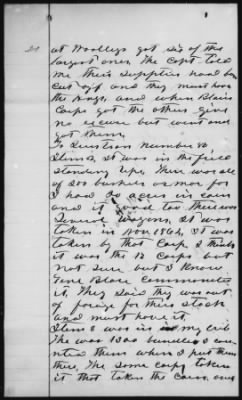 at Woodleys got six of the
largest ones, The Capt. told
me their supplies had been
cut off and they must have
the hogs, and when Blairs
Corps got the others give
no excuse but went and
got them,
To Question number 80,
Item 2, It was in the field
standing up, There was all
of 200 bushels or more for
I had 20 acres in corn
and it good too Their
Several Wagons, It was
taken in Nov. 1864, It was
taken by that Corps I think
it was the 17 Corps but
Not sure but I know
Genl Blair Commanded
it, They said they was out
of forage for their Stock
and must have it,
Item 8 was in my crib
There was 1300 bundles I coun
ted them when I put them
there, The same corps taken
it that taken the Corn, and